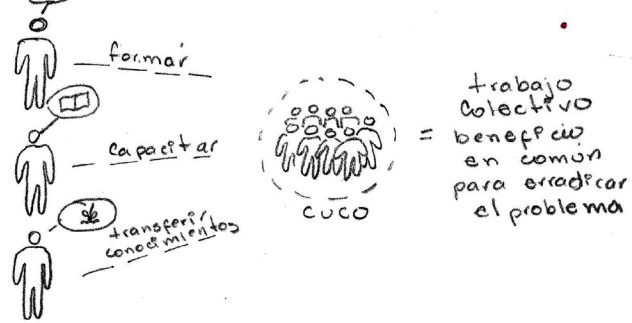 formar
capacitar
transferir
conocimientos
CUCO
= trabajo
colectivo
beneficio
en común
para erradicar
el problema